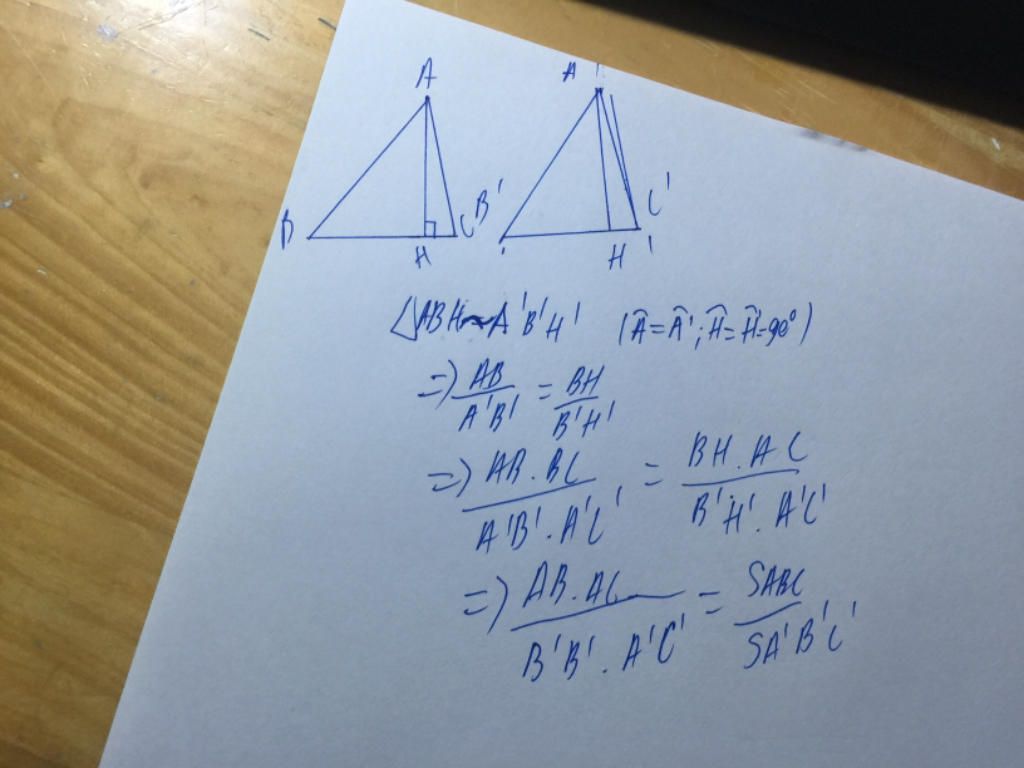 A A'
B' C'
B C
H H'
△ABH ~ A'B'H' (Â = Â'; Ĥ = Ĥ' = 90°)
=> AB/A'B' = BH/B'H'
=> AB . BC/A'B' . A'C' = BH . AC/B'H' . A'C'
=> AB . AC/B'B' . A'C' = SABC/SA'B'C'